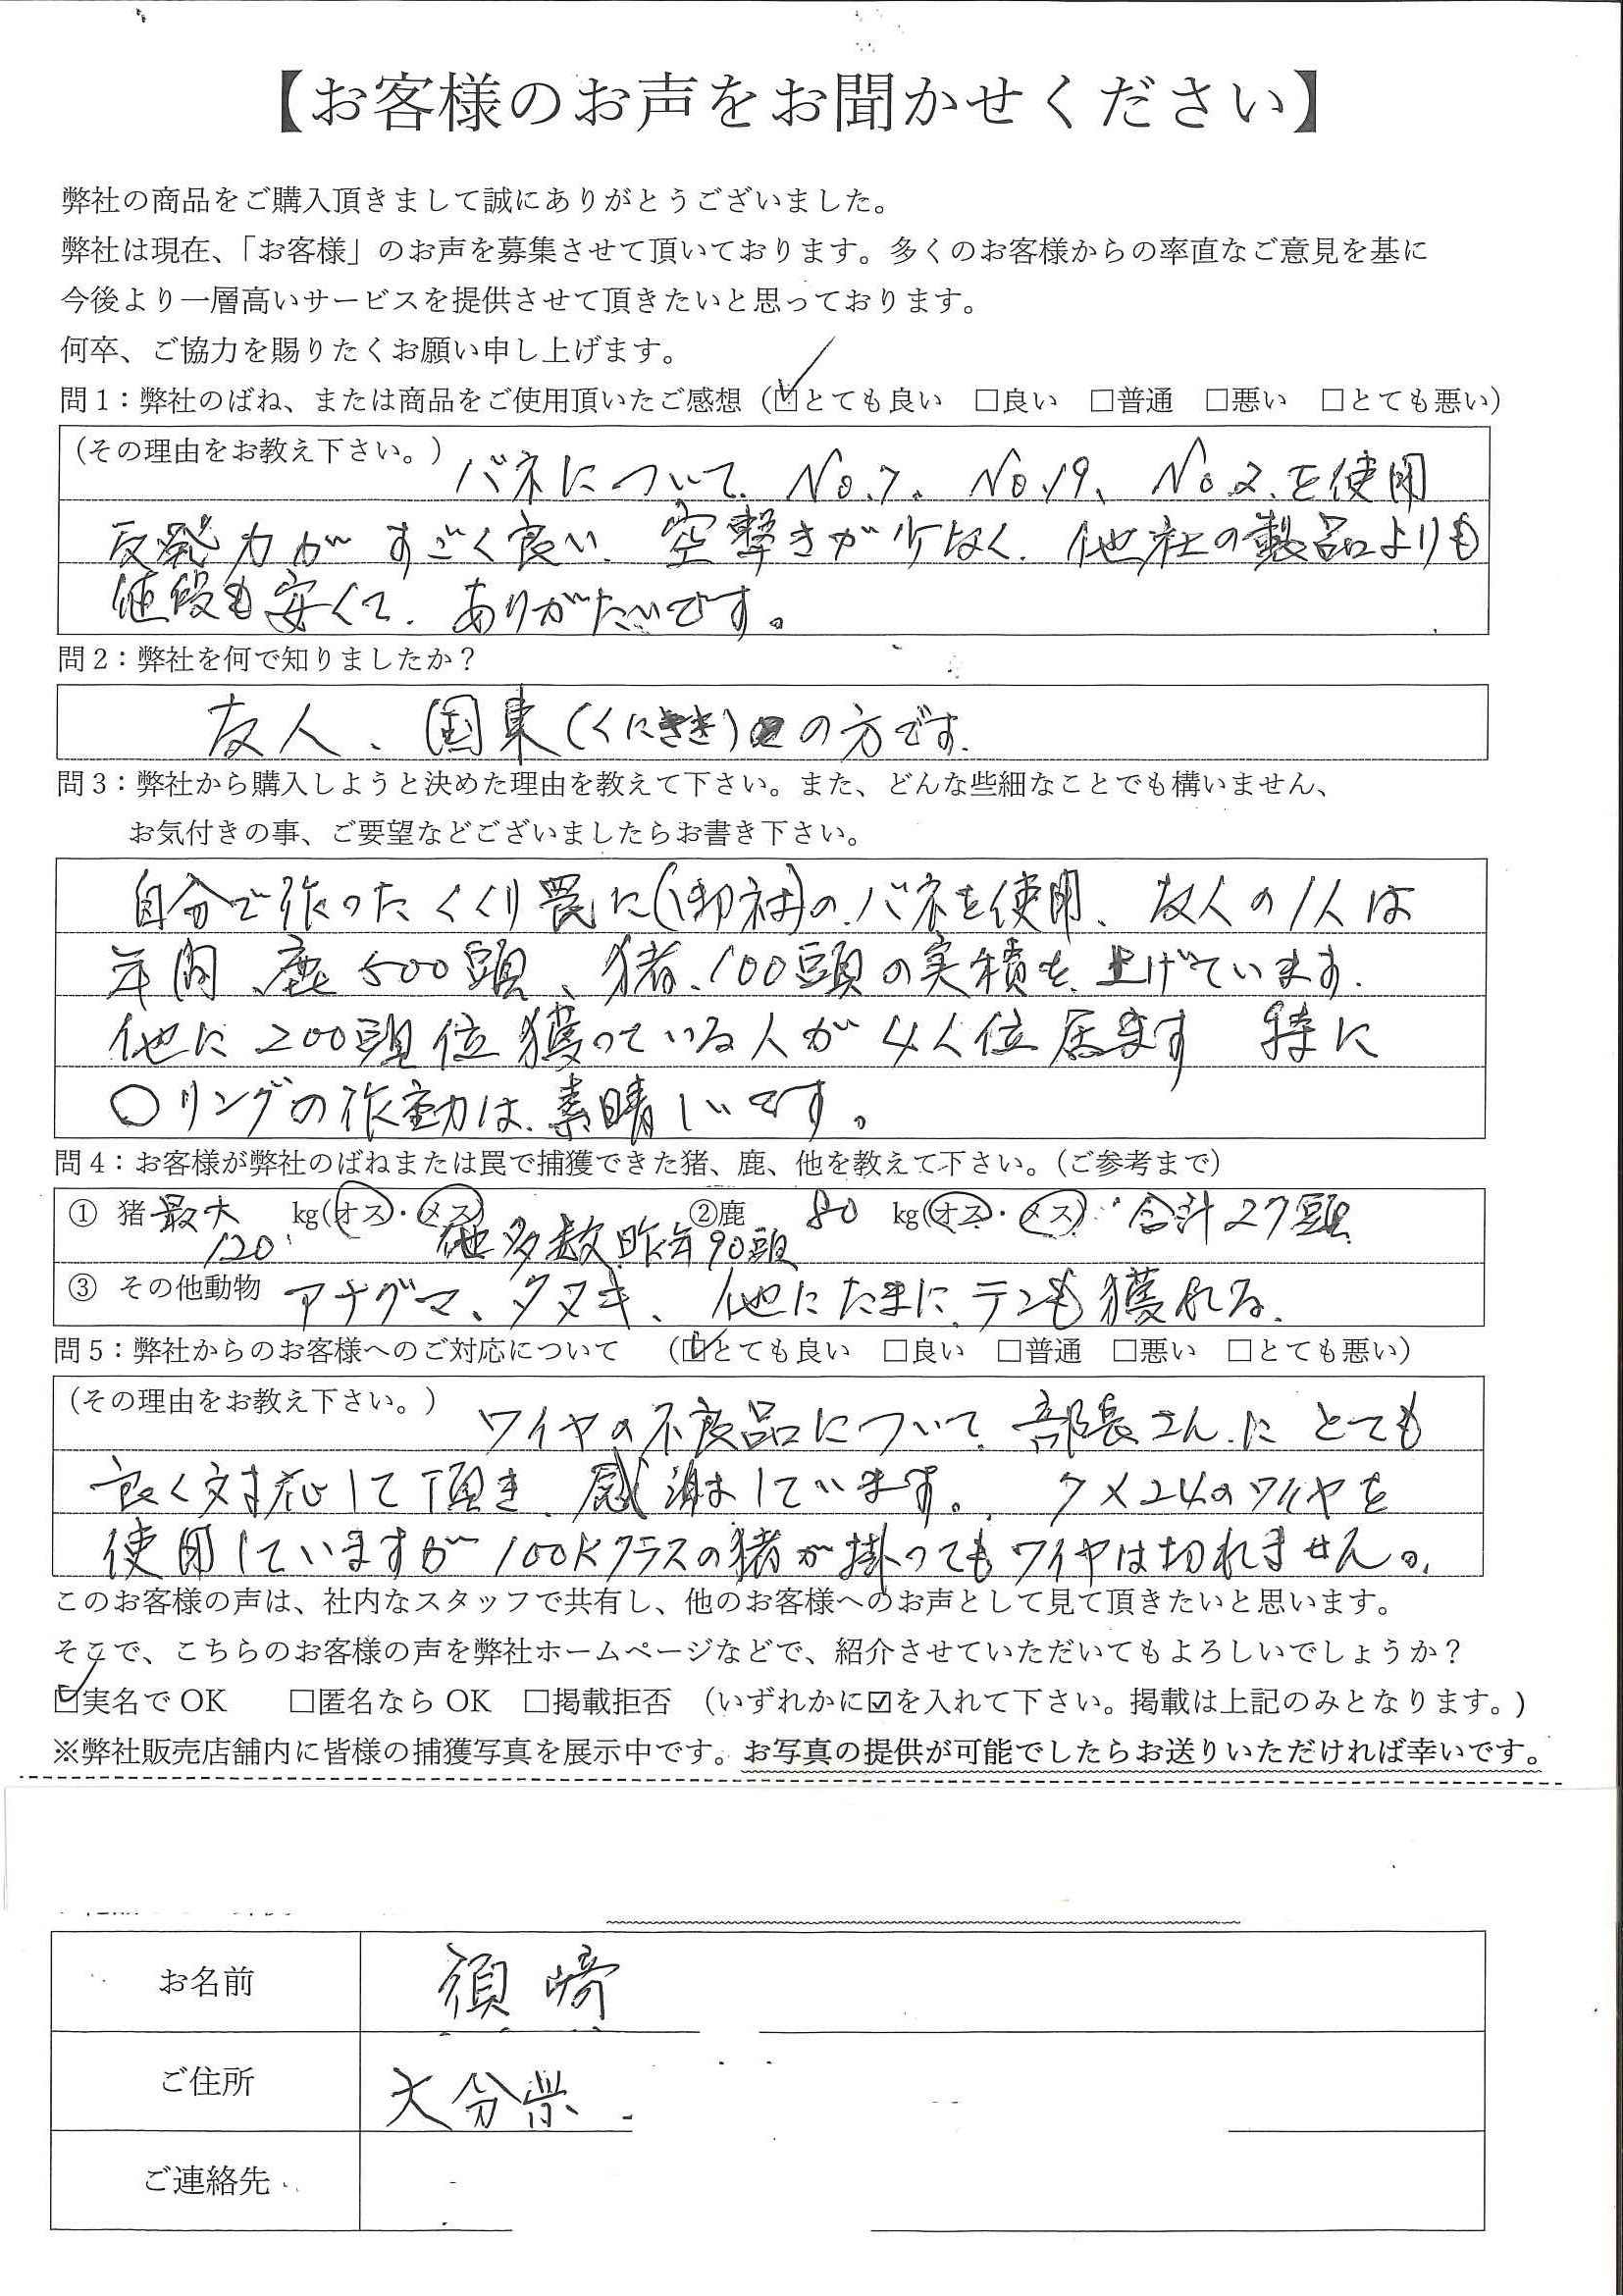 【お客様のお声をお聞かせください】
弊社の商品をご購入頂きまして誠にありがとうございました。
弊社は現在、「お客様」のお声を募集させて頂いております。多くのお客様からの率直なご意見を基に
今後より一層高いサービスを提供させて頂きたいと思っております。
何卒、ご協力を賜りたくお願い申し上げます。
問1：弊社のばね、または商品をご使用頂いたご感想（☑とても良い　□良い　□普通　□悪い　□とても悪い）
（その理由をお教え下さい。）バネについて、No.7、No.19、No.2.を使用
反発力がすごく良い、空撃きが少なく、他社の製品よりも
値段も安くて、ありがたいです。
問2：弊社を何で知りましたか？
友人、国東(くにさき)の方です.
問3：弊社から購入しようと決めた理由を教えて下さい。また、どんな些細なことでも構いません、
お気付きの事、ご要望などございましたらお書き下さい。
自分で作ったくくり罠に(御社)のバネを使用、友人の1人は
年間、鹿500頭、猪、100頭の実積を上げています.
他に200頭位獲っている人が4人位居ます　特に
○リングの作動は、素晴しいです。
問4：お客様が弊社のばねまたは罠で捕獲できた猪、鹿、他を教えて下さい。（ご参考まで）
① 猪 最大 120 kg(オス・メス) 他多数昨年90頭 ②鹿 80 kg(オス・メス) 合計27頭
③ その他動物 アナグマ、タヌキ、他にたまに、テンも獲れる.
問5：弊社からのお客様へのご対応について　（☑とても良い　□良い　□普通　□悪い　□とても悪い）
（その理由をお教え下さい。）ワイヤの不良品について、部長さんにとても
良く対応して頂き、感謝しています。 7×24のワイヤを
使用していますが100Kクラスの猪が掛ってもワイヤは切れません。
このお客様の声は、社内なスタッフで共有し、他のお客様へのお声として見て頂きたいと思います。
そこで、こちらのお客様の声を弊社ホームページなどで、紹介させていただいてもよろしいでしょうか？
☑実名でOK　□匿名ならOK　□掲載拒否　（いずれかに☑を入れて下さい。掲載は上記のみとなります。）
※弊社販売店舗内に皆様の捕獲写真を展示中です。お写真の提供が可能でしたらお送りいただければ幸いです。
お名前 須﨑
ご住所 大分県
ご連絡先